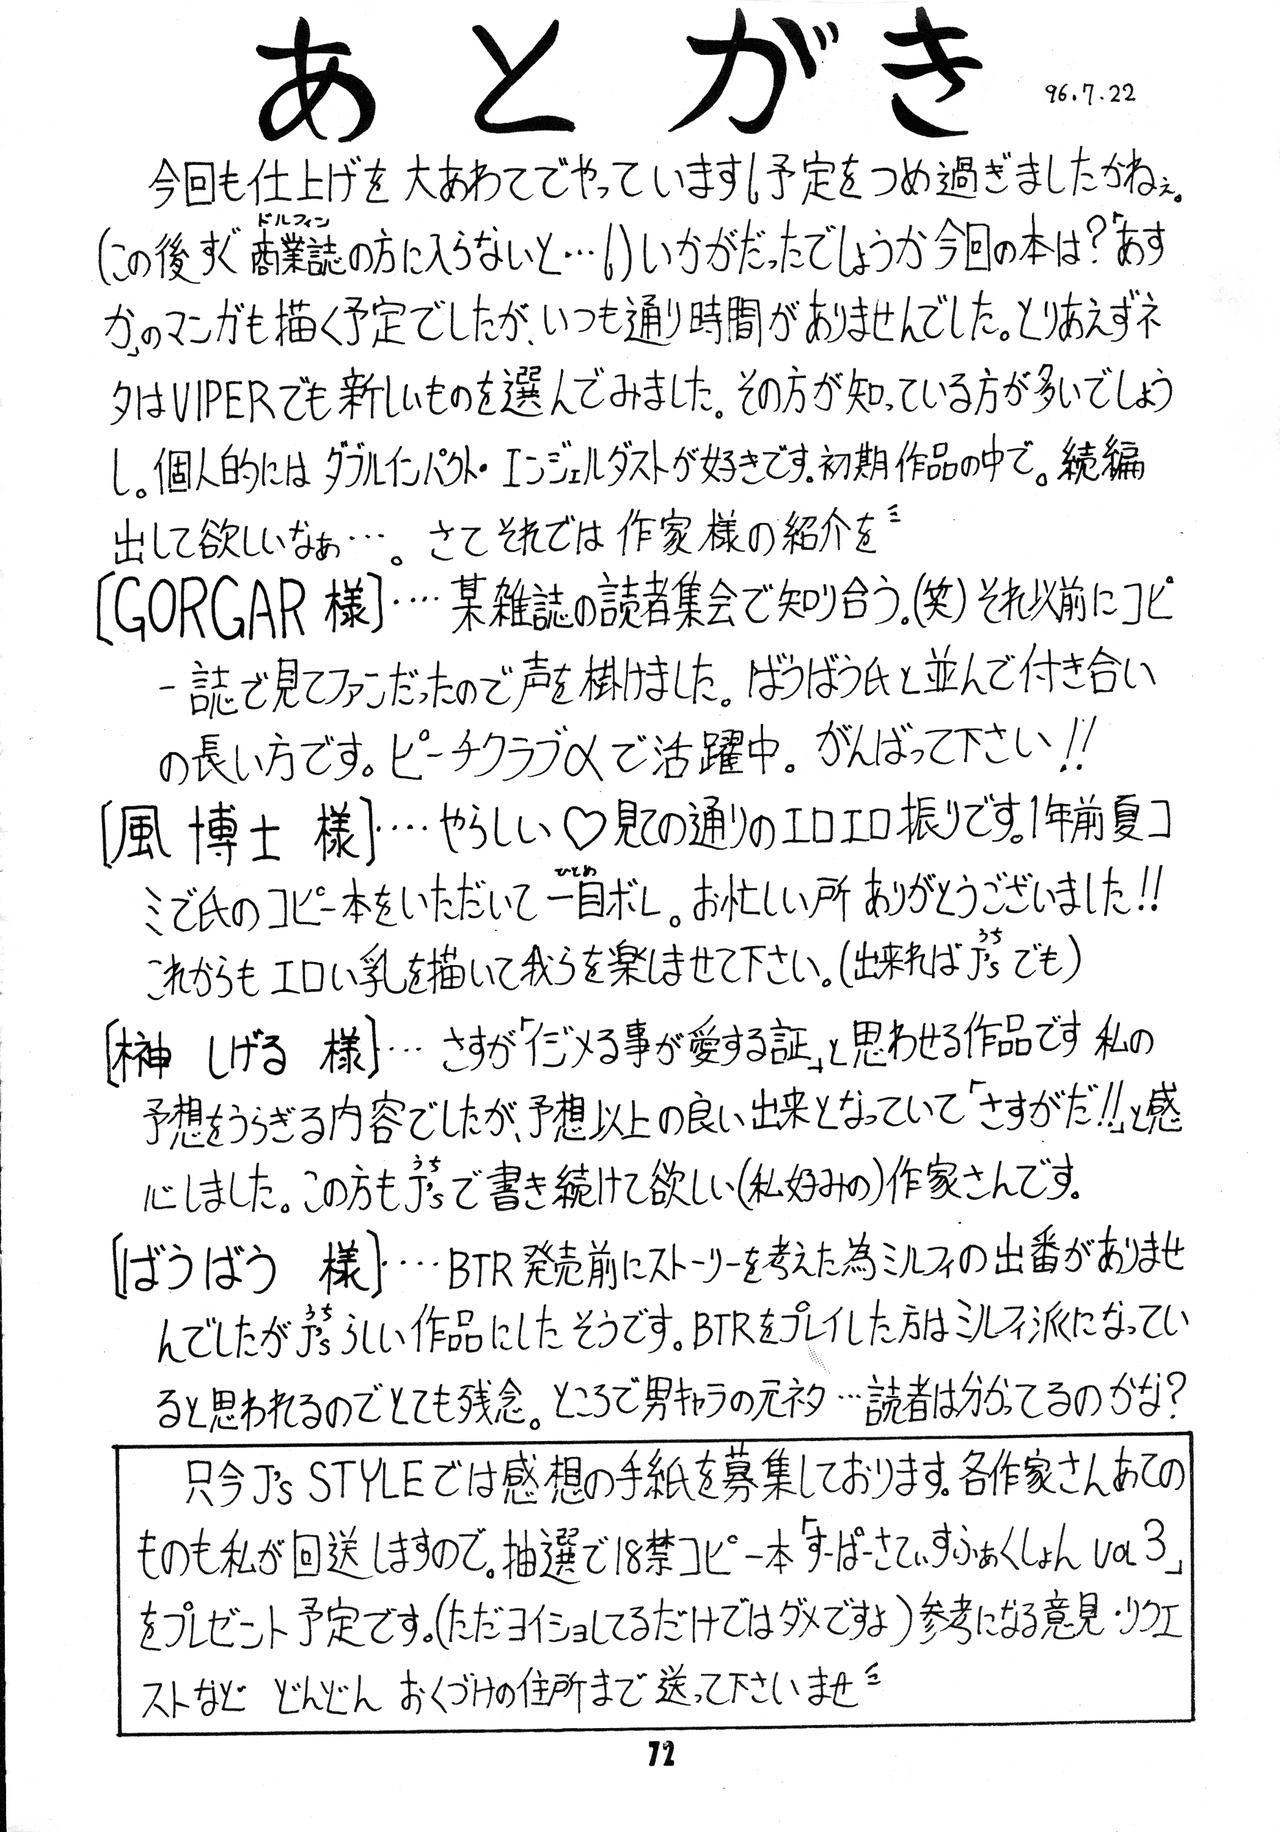 あとがき
96.7.22
今回も仕上げを大あわてでやっています!予定をつめ過ぎましたかねぇ。
ドルフィン
(この後すぐ商業誌の方に入らないと…!)いかがだったでしょうか今回の本は?「あす
か」のマンガも描く予定でしたが、いつも通り時間がありませんでした。とりあえずネ
タはVIPERでも新しいものを選んでみました。その方が知っている方が多いでしょう
し。個人的にはダブルインパクト・エンジェルダストが好きです。初期作品の中で。続編
出して欲しいなぁ…。さてそれでは作家様の紹介を
[GORGAR様]‥‥某雑誌の読者集会で知り合う。(笑)それ以前にコピ
ー誌で見てファンだったので声を掛けました。ばうばう氏と並んで付き合い
の長い方です。ピーチクラブαで活躍中。がんばって下さい!!
[風博士様]‥‥やらしい♡見ての通りのエロエロ振りです。1年前夏コ
ひとめ
ミで氏のコピー本をいただいて一目ボレ。お忙しい所ありがとうございました!!
うち
これからもエロい乳を描いて我らを楽しませて下さい。(出来ればJ'sでも)
[榊しげる様]‥‥さすが「イジメる事が愛する証」と思わせる作品です私の
予想をうらぎる内容でしたが、予想以上の良い出来となっていて「さすがだ!!」と感
うち
心しました。この方もJ'sで書き続けて欲しい(私好みの)作家さんです。
[ばうばう様]‥‥BTR発売前にストーリーを考えた為ミルフィの出番がありませ
うち
んでしたがJ'sらしい作品にしたそうです。BTRをプレイした方はミルフィ派になってい
ると思われるのでとても残念。ところで男キャラの元ネタ…読者は分かってるのかな?
只今J's STYLEでは感想の手紙を募集しております。各作家さんあての
ものも私が回送しますので。抽選で18禁コピー本「すーぱーさてぃすふぁくしょんvol 3」
をプレゼント予定です。(ただヨイショしてるだけではダメですよ)参考になる意見・リクエ
ストなどどんどんおくづけの住所まで送って下さいませ
72